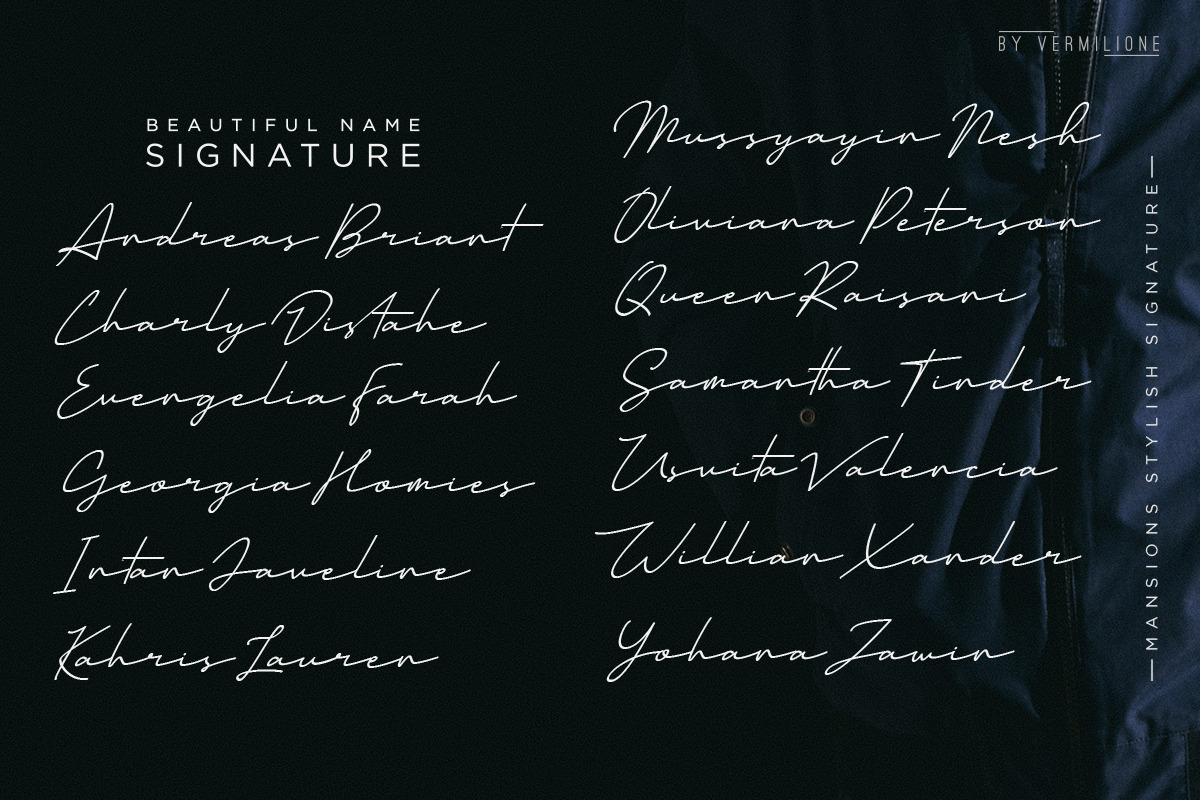 BY VERMILIONE
BEAUTIFUL NAME
SIGNATURE
Andreas Briant
Charly Distahe
Evengelia Farah
Georgia Homies
Intan Javeline
Kahris Lauren
Mussyayin Nesh
Oliviana Peterson
Queen Raisani
Samantha Tinder
Usvita Valencia
Willian Xander
Yohana Zawin
MANSIONS STYLISH SIGNATURE